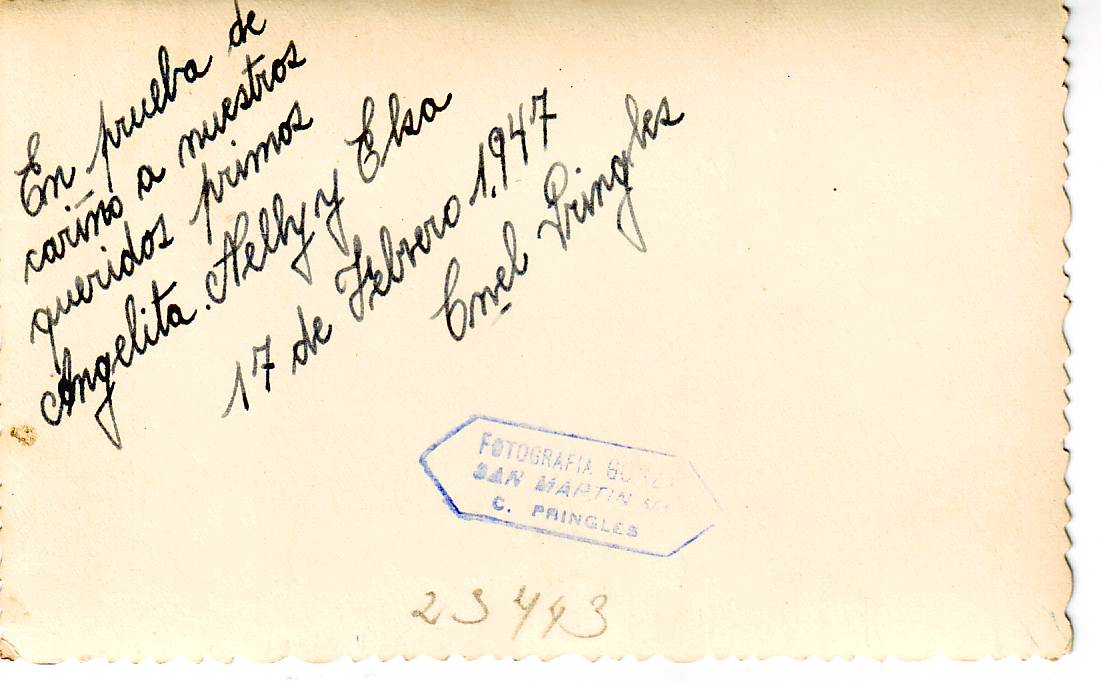 En prueba de
cariño a nuestros
queridos primos
Angelita. Nelly y Elsa
17 de Febrero 1.947
Cnel Pringles
FOTOGRAFIA
SAN MARTIN
C. PRINGLES
23443